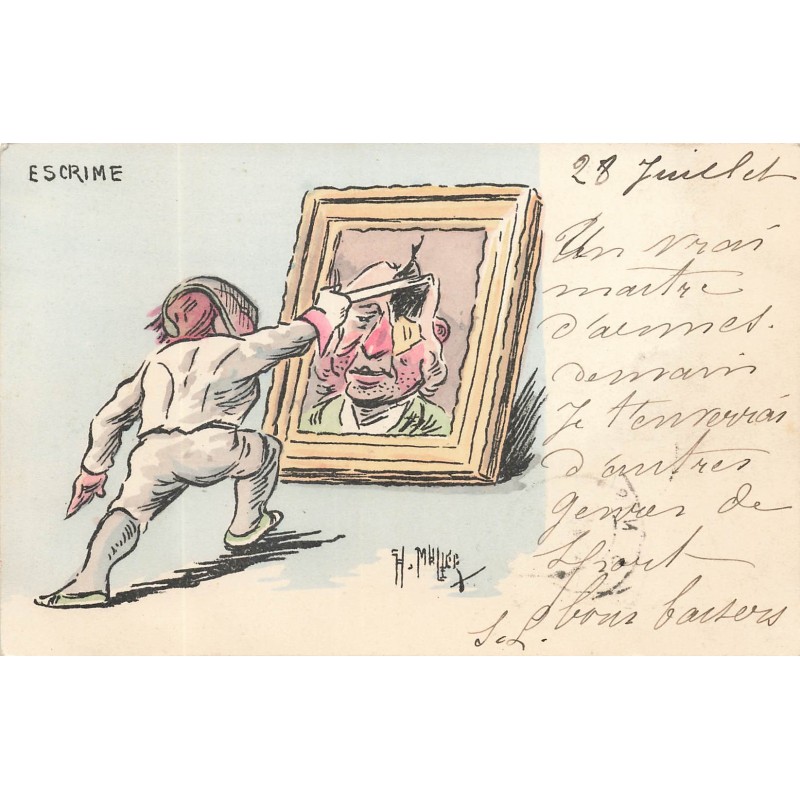 ESCRIME
28 Juillet
Un vrai
maitre
d'armes.
demain
Je t'enverrai
d'autres
genres de
Sport
bons baisers
S. L.
H. MULLER